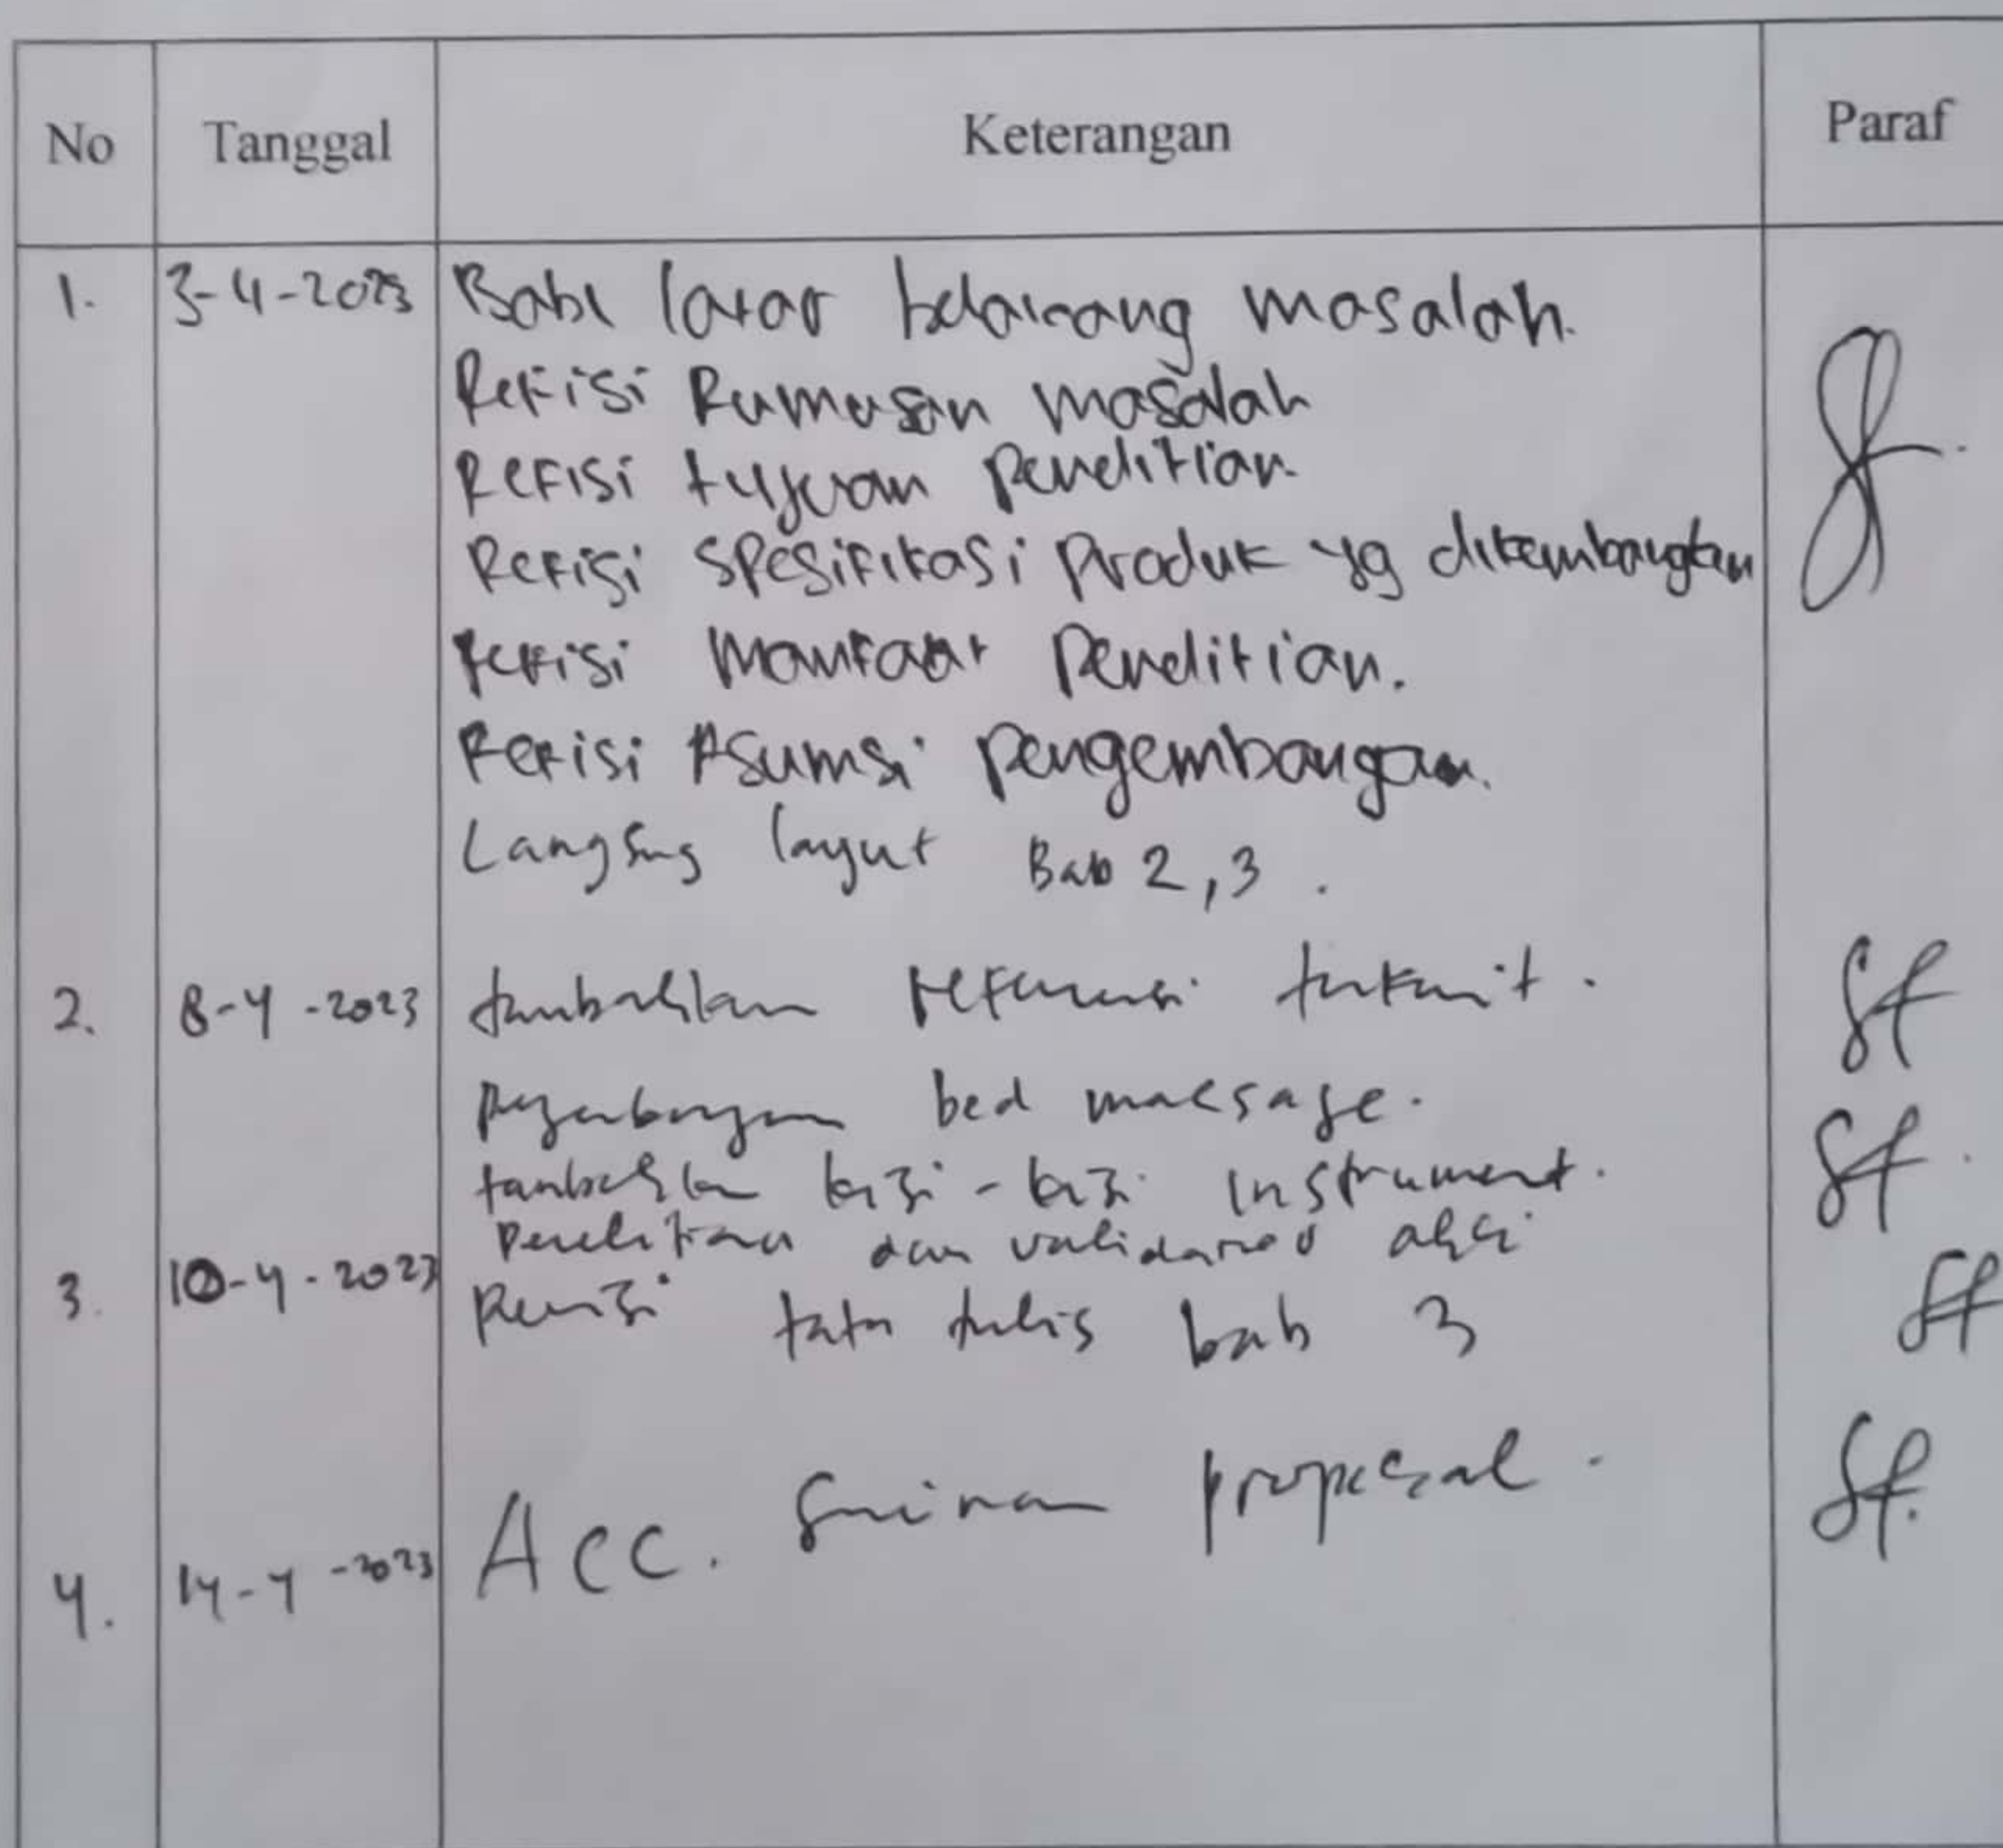 No Tanggal Keterangan Paraf
1. 3-4-2023 Bab 1 latar belakang masalah.
Refisi Rumusan masalah
Refisi tujuan penelitian
Refisi spesifikasi Produk yg dikembangkan
Refisi Manfaat Penelitian.
Refisi Asumsi pengembangan.
Langsung lanjut Bab 2,3.
2. 8-4-2023 tambahkan referensi terkait.
pengembangan bed massage.
tambahkan kisi-kisi instrument.
Penelitian dan validator ahli
3. 10-4-2023 Revisi tata tulis bab 3
4. 14-4-2023 Acc. Seminar proposal.